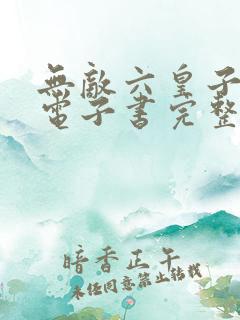 無敵六皇子
電子書完整
暗香正午
未經同意禁止轉載